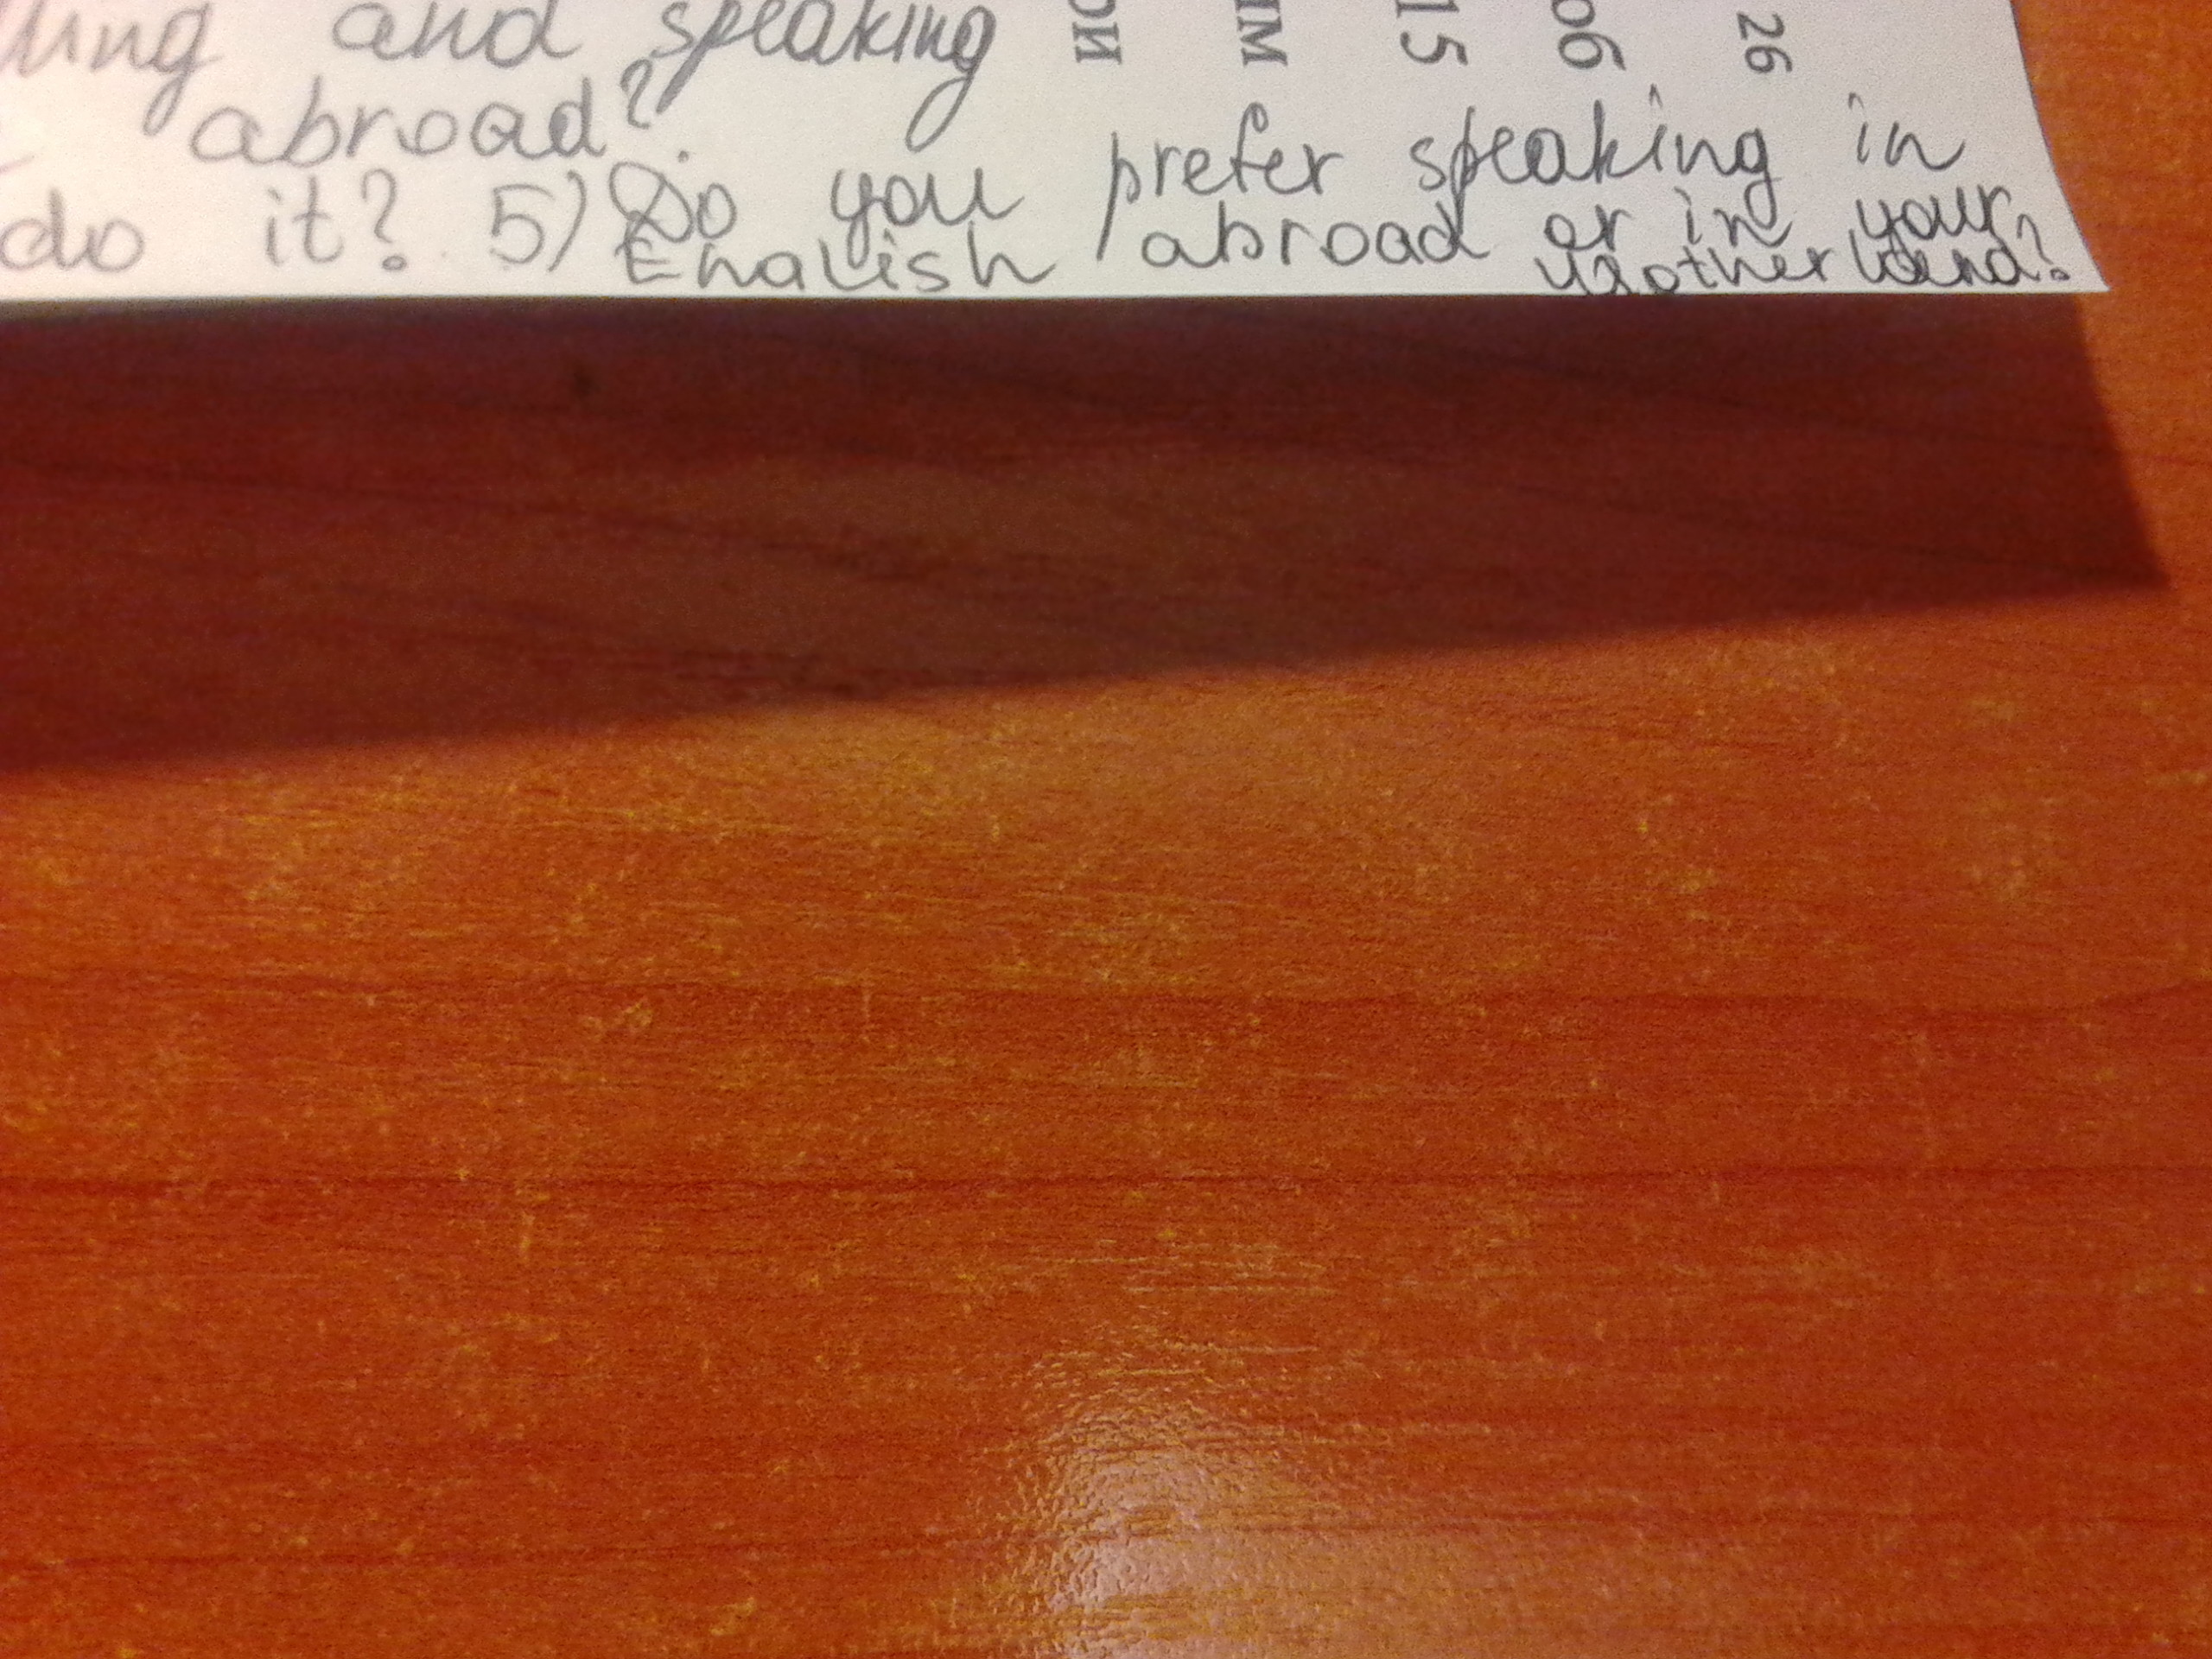 and speaking
abroad?
do it? 5) Do you prefer speaking in
English abroad or in your
Motherland?
ои
ым
15
об
26